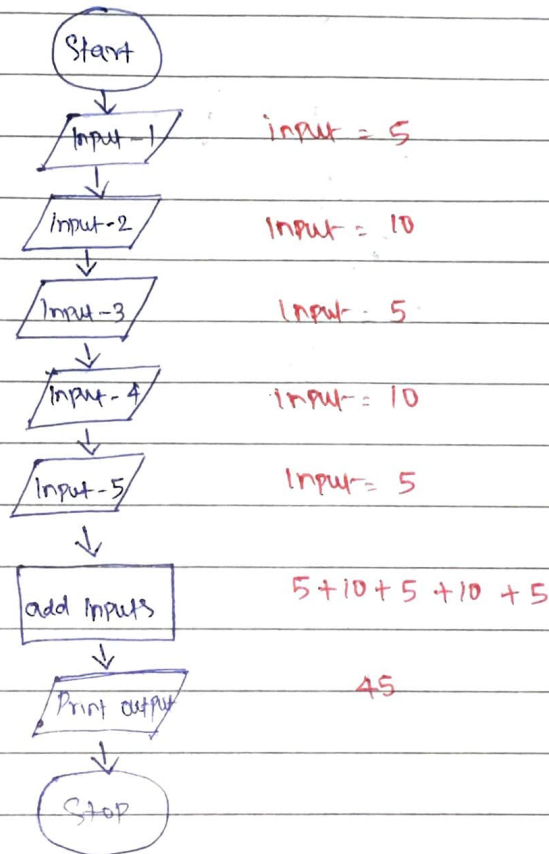 Start
Input-1 input = 5
input-2 Input = 10
Input-3 Input = 5
Input-4 Input = 10
Input-5 Input = 5
add Inputs 5+10+5+10+5
Print output 45
Stop